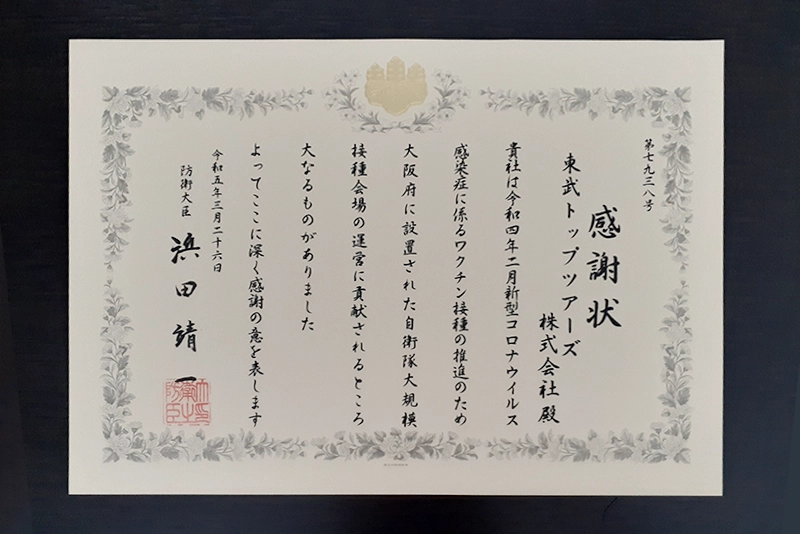 第七九三八号
感謝状
東武トップツアーズ
株式会社殿
貴社は令和四年二月新型コロナウイルス
感染症に係るワクチン接種の推進のため
大阪府に設置された自衛隊大規模
接種会場の運営に貢献されるところ
大なるものがありました
よってここに深く感謝の意を表します
令和五年三月二十六日
防衛大臣 浜田靖一
防衛大臣